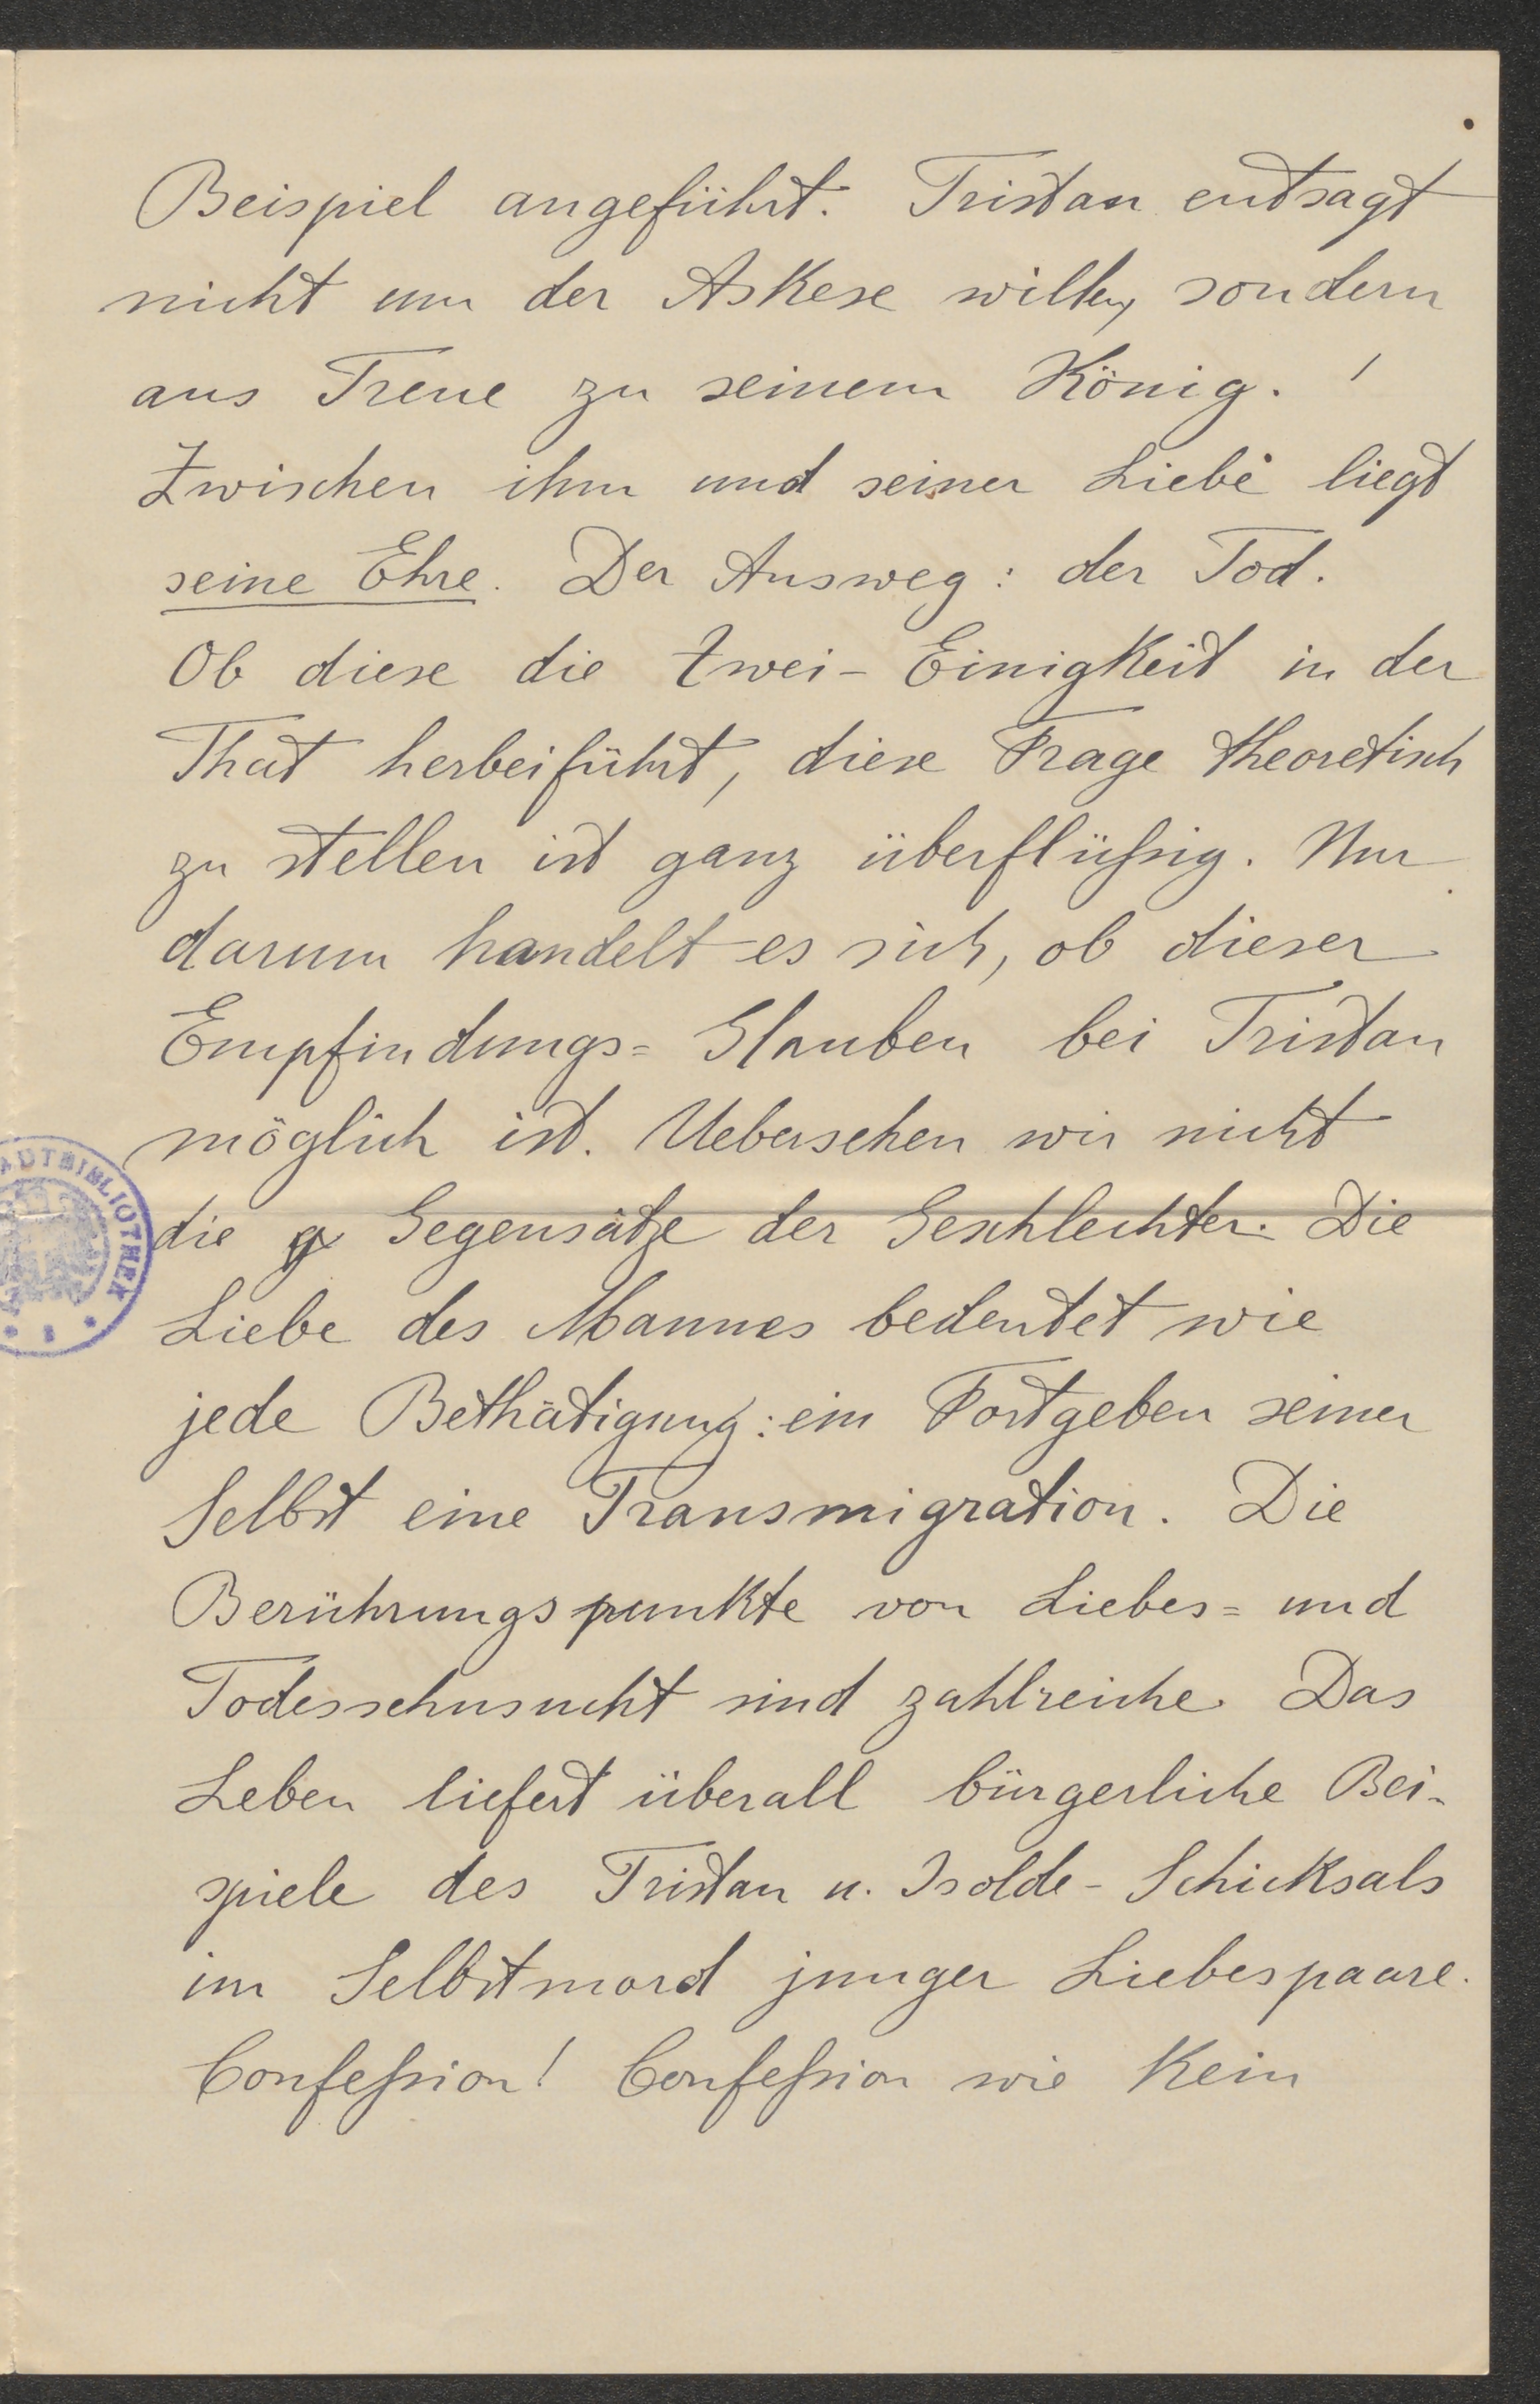 Beispiel angeführt. Tristan entsagt
nicht um der Askese willen, sondern
aus Treue zu seinem König. !
Zwischen ihm und seiner Liebe liegt
seine Ehre. Der Ausweg: der Tod.
Ob diese die Zwei-Einigkeit in der
That herbeiführt, diese Frage theoretisch
zu stellen ist ganz überflüßig. Nur
darum handelt es sich, ob dieser
Empfindungs= Glauben bei Tristan
möglich ist. Uebersehen wir nicht
die g Gegensätze der Geschlechter. Die
Liebe des Mannes bedeutet wie
jede Bethätigung: ein Fortgeben seiner
Selbst eine Transmigration. Die
Berührungspunkte von Liebes= und
Todessehnsucht sind zahlreiche. Das
Leben liefert überall bürgerliche Bei-
spiele des Tristan u. Isolde-Schicksals
im Selbstmord junger Liebespaare.
Confeßion! Confeßion wie kein
ADTBIBLIOTHEK